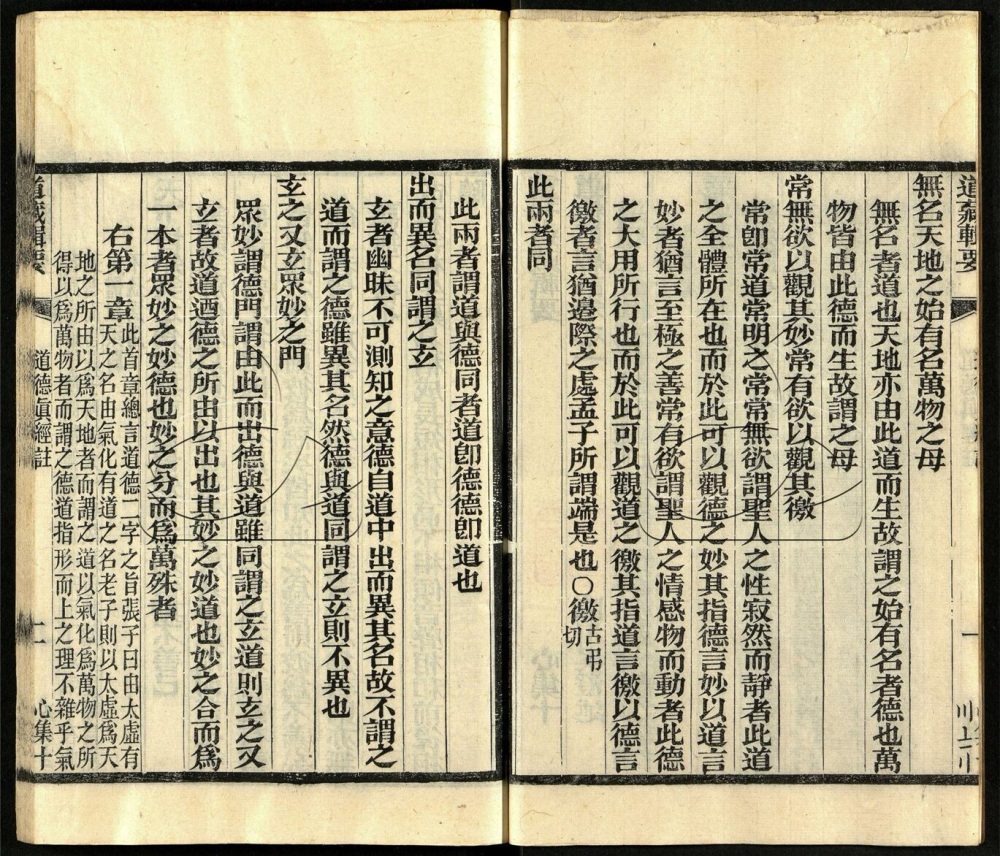 道藏輯要
無名天地之始有名萬物之母
無名者道也天地亦由此道而生故謂之始有名者德也萬
物皆由此德而生故謂之母
常無欲以觀其妙常有欲以觀其徼
常卽常道常明之常常無欲謂聖人之性寂然而靜者此道
之全體所在也而於此可以觀德之妙其指德言妙以道言
妙者猶言至極之善常有欲謂聖人之情感物而動者此德
之大用所行也而於此可以觀道之徼其指道言徼以德言
徼者言猶邊際之處孟子所謂端是也〇徼古弔切
此兩者同
此兩者謂道與德同者道卽德德卽道也
出而異名同謂之玄
玄者幽昧不可測知之意德自道中出而異其名故不謂之
道而謂之德雖異其名然德與道同謂之玄則不異也
玄之又玄眾妙之門
眾妙謂德門謂由此而出德與道雖同謂之玄道則玄之又
玄者故道迺德之所由以出也其妙之妙道也妙之合而爲
一本者眾妙之妙德也妙之分而爲萬殊者
右第一章此首章總言道德二字之旨張子曰由太虛有
天之名由氣化有道之名老子則以太虛爲天
地之所由以爲天地者而謂之道以氣化爲萬物之所
得以爲萬物者而謂之德道指形而上之理不雜乎氣
道藏輯要 道德眞經註 二 心集十